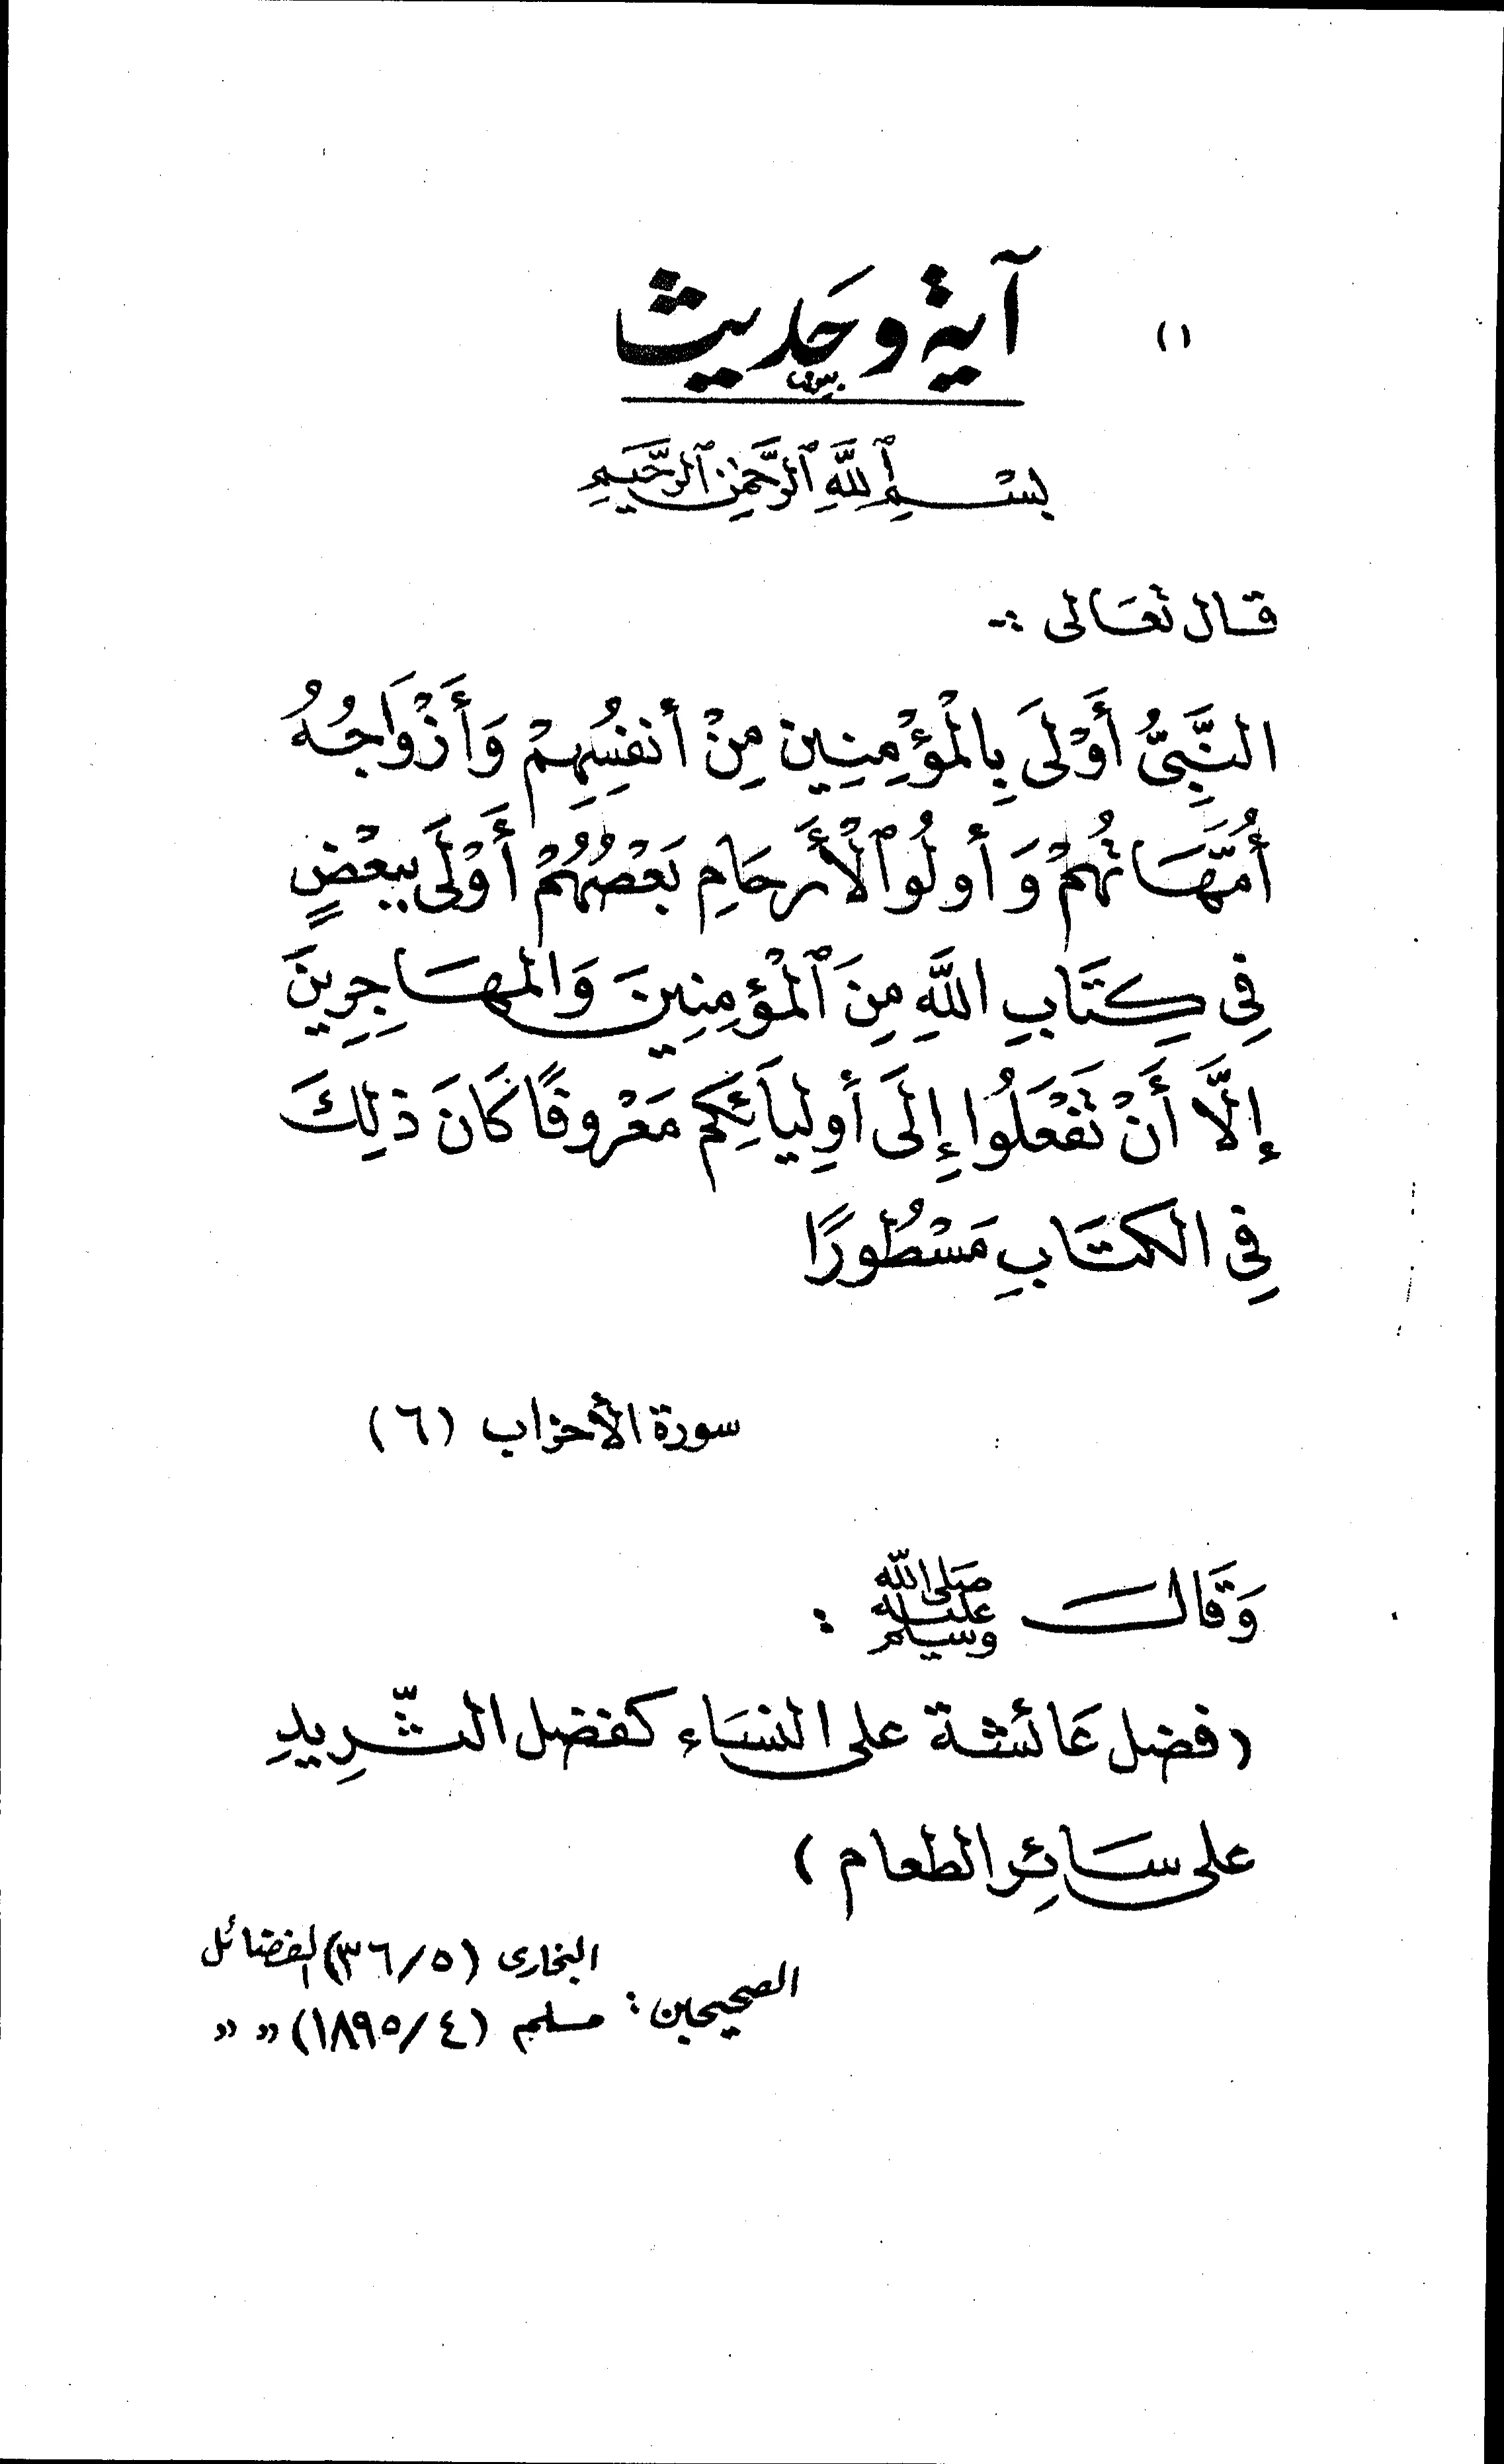 ( ١
آية وحَديث
بِسْمِ ٱللَّهِ ٱلرَّحْمٰنِ ٱلرَّحِيمِ
قال تعَالى :-
النَّبِىُّ أَوْلَى بِالْمُؤْمِنِين مِنْ أنفُسِهِمْ وَأَزْوَاجُهُ
أُمَّهَاتُهُمْ وَأولُوا ٱلْأَرحَامِ بَعْضُهُمْ أَوْلَى بِبَعْضٍ
فِى كِتَابِ اللَّهِ مِنَ ٱلْمُؤمِنِينَ وَالمهَاجِرِينَ
إلَّا أَنْ تَفْعَلُوا إِلَى أَولِيَائِكم مَعْروفًا كَانَ ذلِكَ
فِى الكتَابِ مَسْطُورًا
سورة الأحزاب (٦)
وَقَال صَلى الله عليه وسلم :
(فضل عَائشة على النسَاء كفضل الثَّرِيدِ
على سَائِر الطعام )
الصحيحين : البخارى (٣٦/٥) الفضائل
مسلم (١٨٩٥/٤) » »